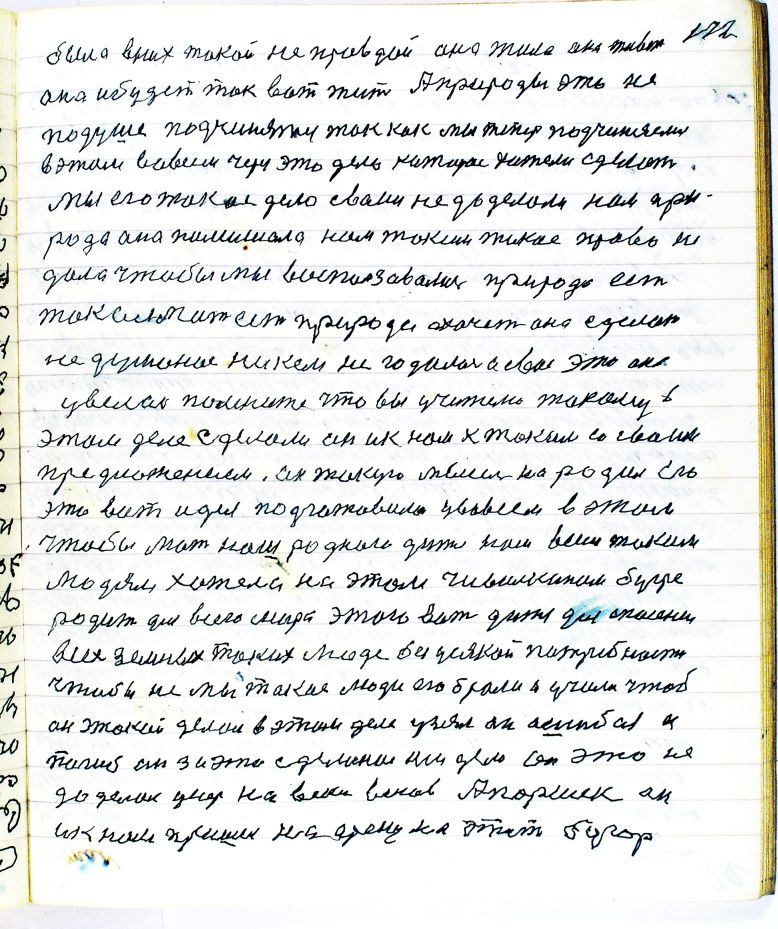 172
была вних такой не правдой она жила она живет
она ибудет так вот жит Априроды это не
подуше подчинятся так как мы тепер подчиняемся
вэтом вовсем чери это дело которое хотели сделат.
мы его такое дело своим не доделали нам при-
рода она помишала нам таким такое право не
дала чтобы мы воспользавалис природа ест
такое ест природа охочет она сделат
не думаное никем не годалос а свое это она
помните что вы учителю такому в
этом деле сделали он ик нам к таким со своим
предложением. он такую мысел народил его
это вот идея подготовила увовсем в этом
чтобы мат наш роднога дитя нам всем таким
людям хотела на этом чивилкином бугре
родит для всего мира этого вот дитя для спасения
всех земных таких люде без усякой патребности
чтобы не мы такое люди его брали а учили чтоб
он этакой делал в этом деле узял он ашибся и
погиб он за это сделаное им дело он это не
доделал умер на веки веков Апоршек он
ик нам пришел на арену на этот бугор